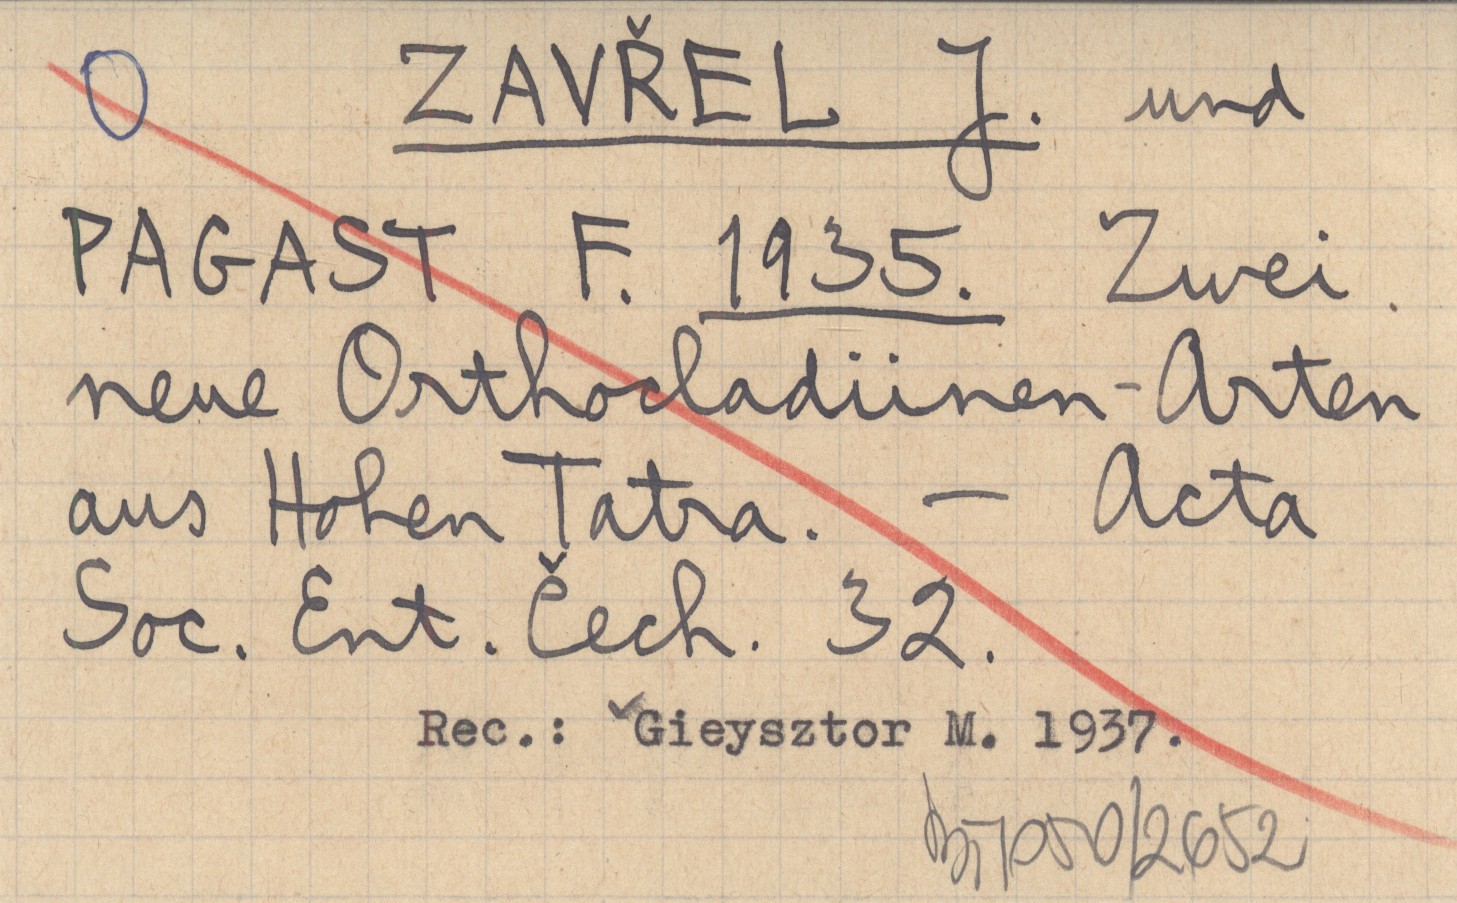 ZAVŘEL J. und
PAGAST F. 1935. Zwei
neue Orthocladiinen-Arten
aus Hohen Tatra. — Acta
Soc. Ent. Čech. 32.
Rec.: Gieysztor M. 1937.